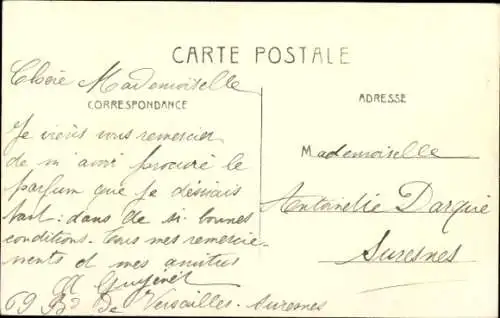 CARTE POSTALE
Chère Mademoiselle
CORRESPONDANCE
ADRESSE
Je viens vous remercier
de m'avoir procuré le
parfum que je désirais
tant : dans de si bonnes
conditions. Tous mes remercie-
ments et mes amitiés
69 Bd de Versailles. Suresnes
Mademoiselle
Antoinette Darqué
Suresnes